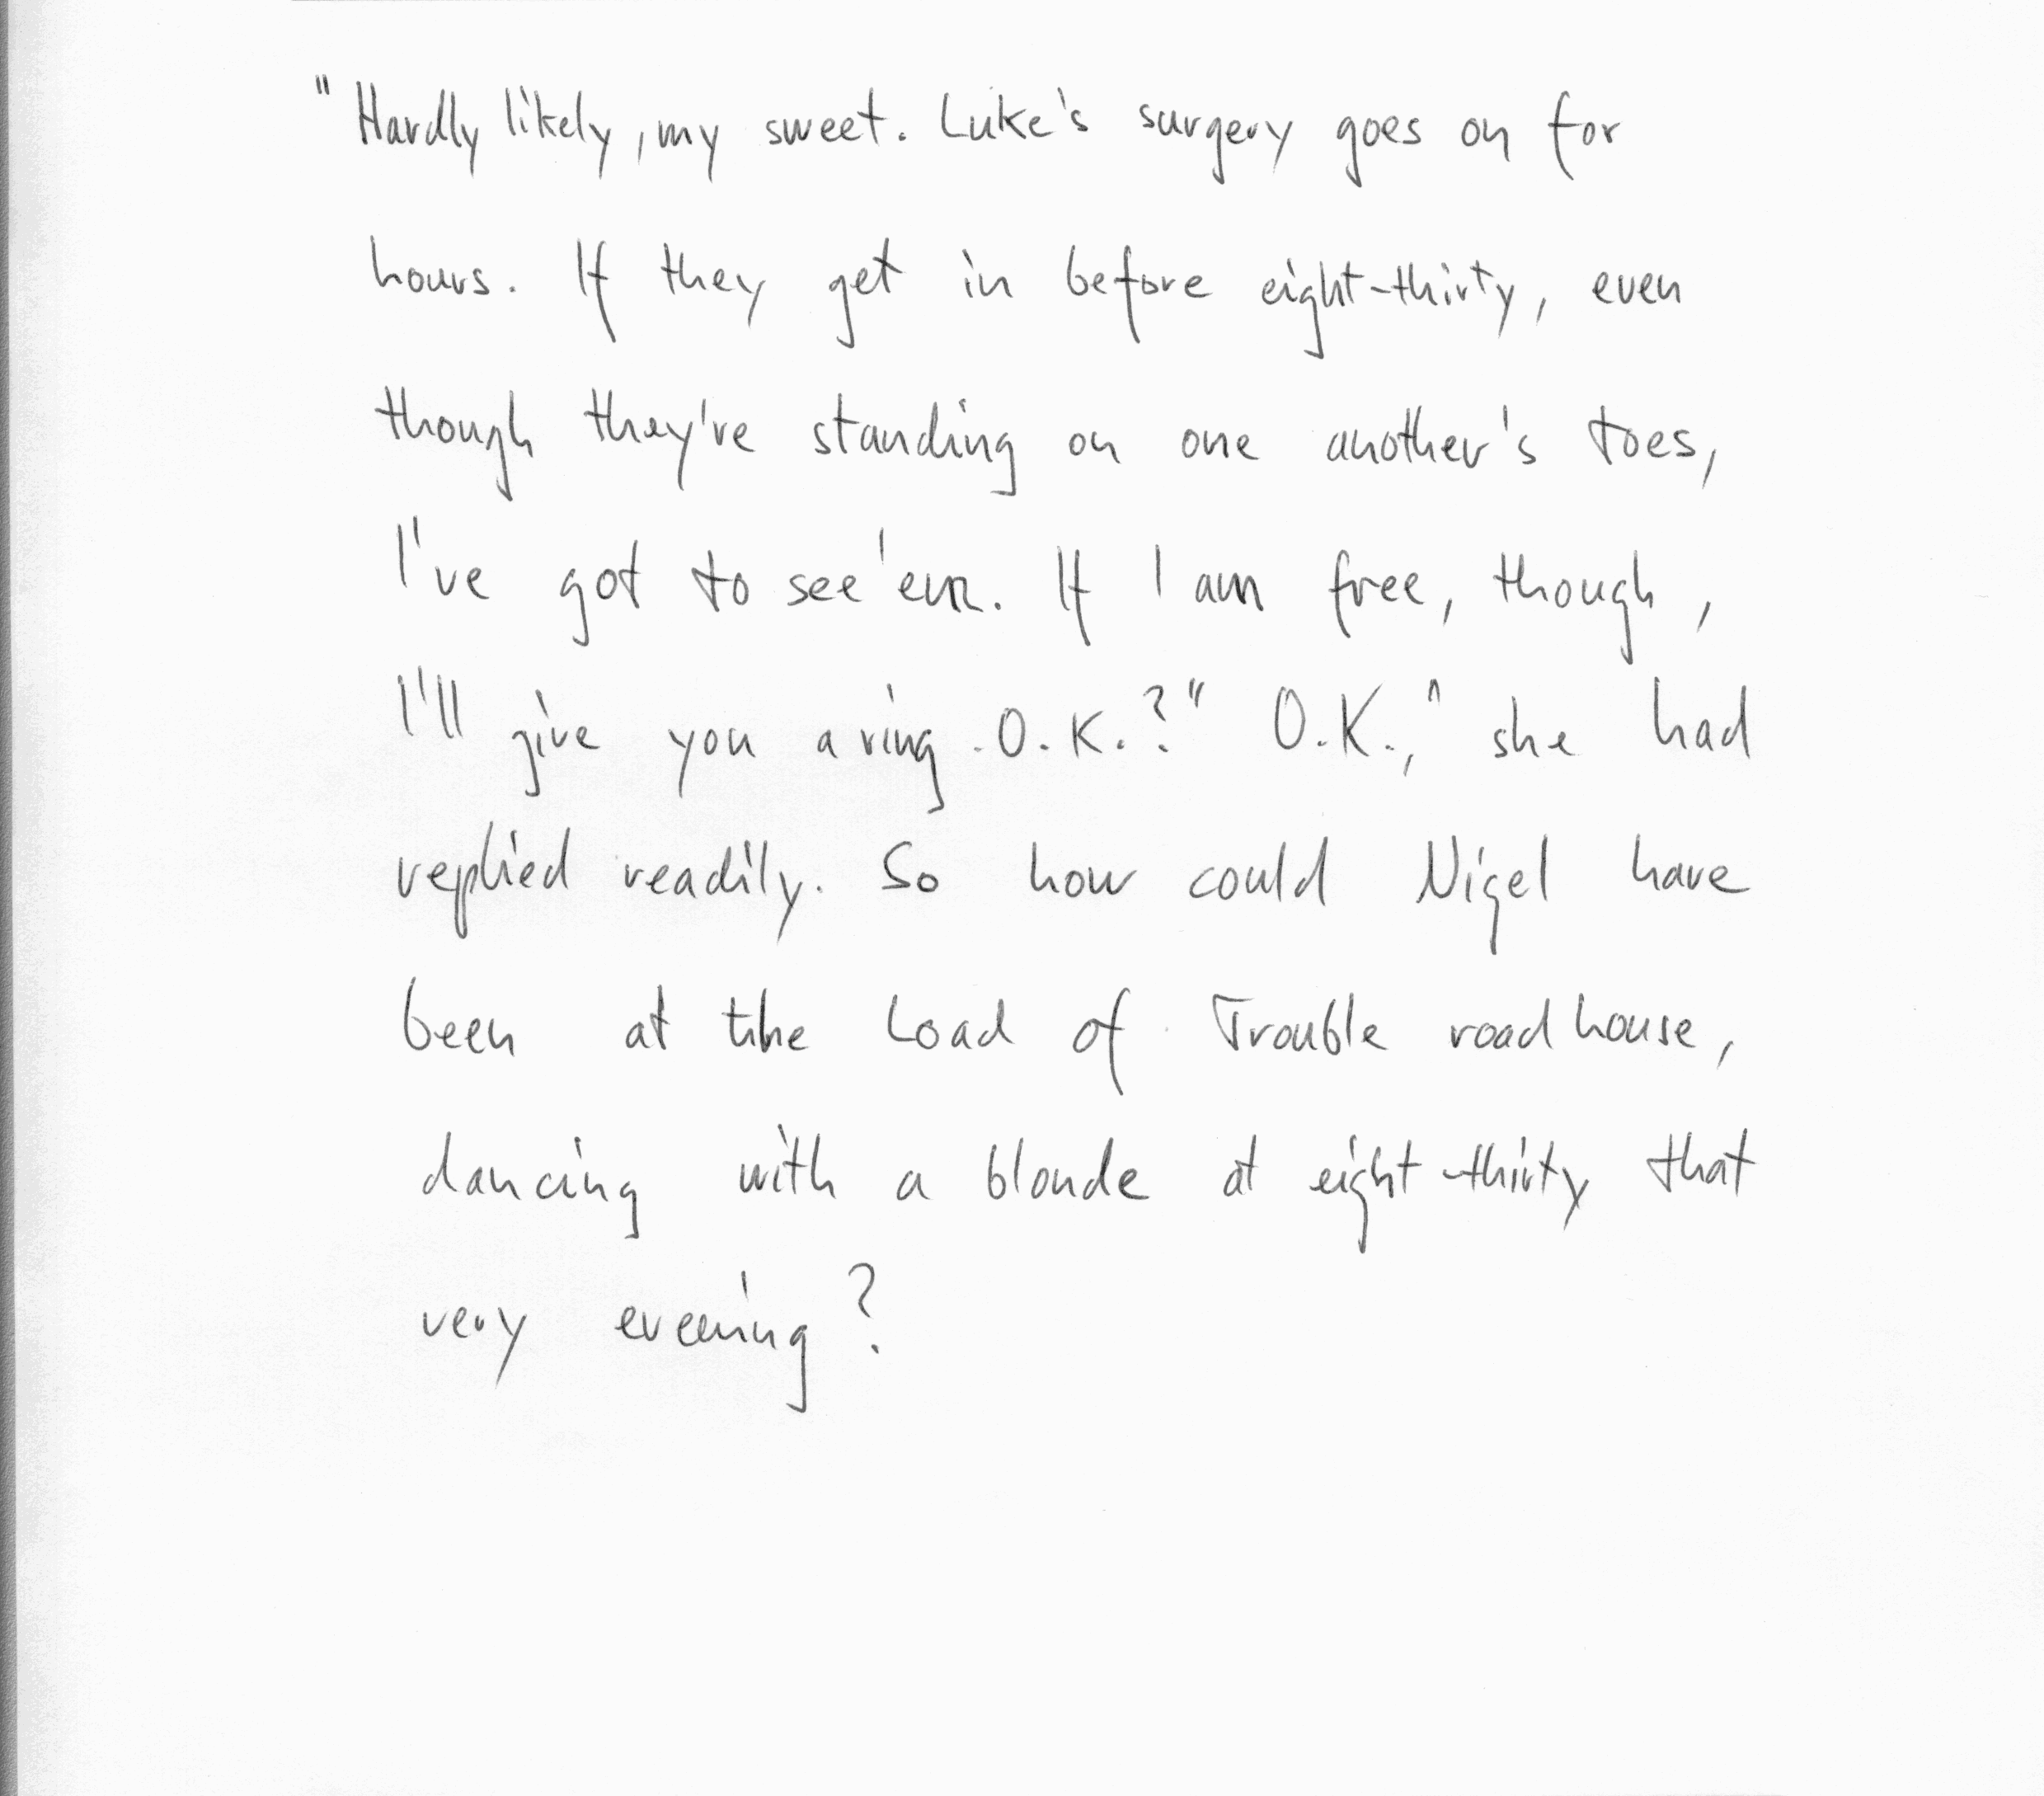 "Hardly likely, my sweet. Luke's surgery goes on for
hours. If they get in before eight-thirty, even
though they're standing on one another's toes,
I've got to see 'em. If I am free, though,
I'll give you a ring. O.K.?" O.K.," she had
replied readily. So how could Nigel have
been at the Load of Trouble roadhouse,
dancing with a blonde at eight-thirty that
very evening?